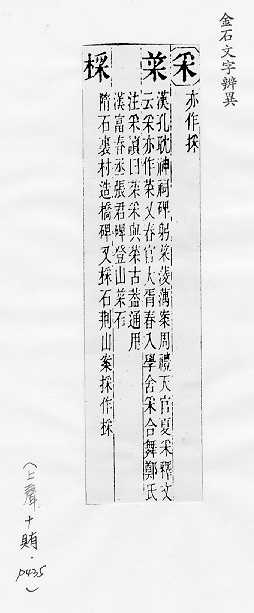 金石文字辨異
采 亦作採
菜 漢孔耽神祠碑躬菜蔆藕案周禮天官夏采釋文
云采亦作菜又春官大胥春入學舍采合舞鄭氏
注采讀曰菜采與菜古蓋通用
漢富春丞張君碑登山菜石
採 隋石裏村造橋碑又採石荊山案採作採
(上聲十賄.p435)